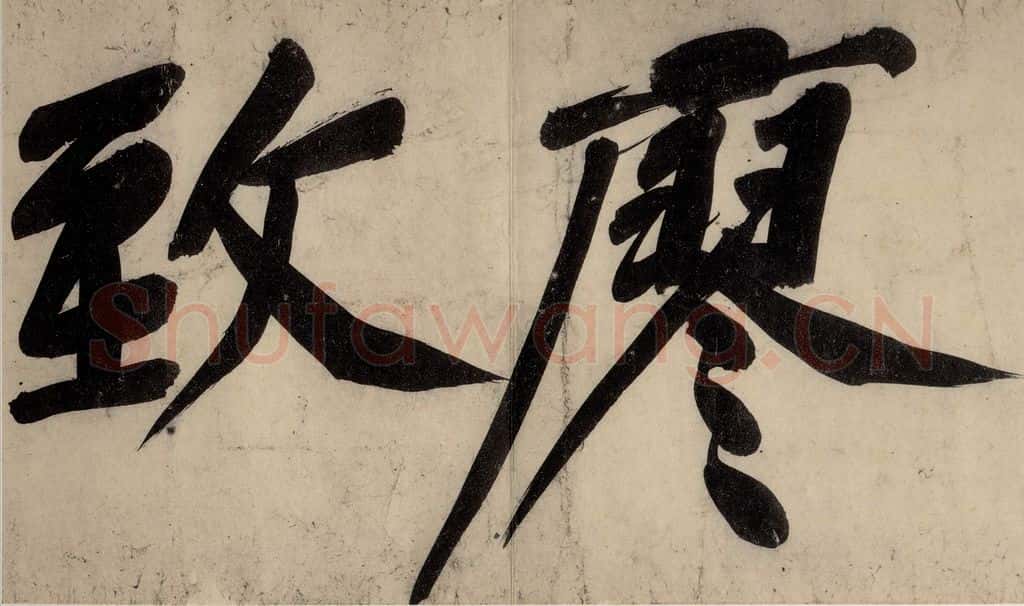 廖
致
Shufawang.CN